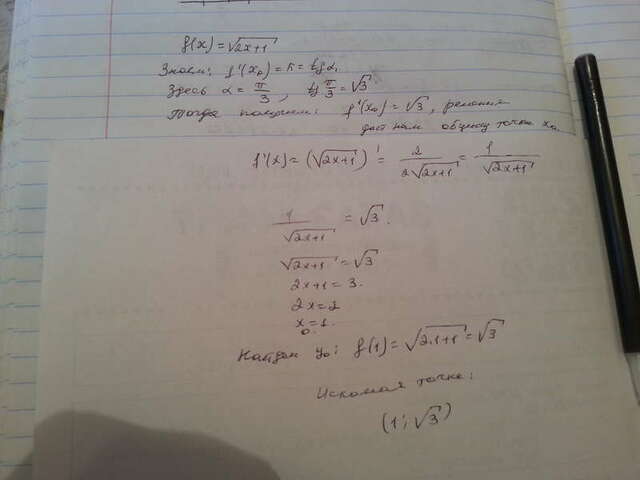 f(x) = √2x+1
Знаем: f'(x₀) = k = tg α,
Здесь α = π/3, tg π/3 = √3
Тогда получим: f'(x₀) = √3, решение
даст нам абциссу точки x₀.
f'(x) = (√2x+1)' = 2/(2√2x+1) = 1/√2x+1
1/√2x+1 = √3.
√2x+1 = √3
2x+1 = 3.
2x = 2
x₀ = 1.
Найдем y₀: f(1) = √2·1+1 = √3
Искомая точка:
(1; √3)